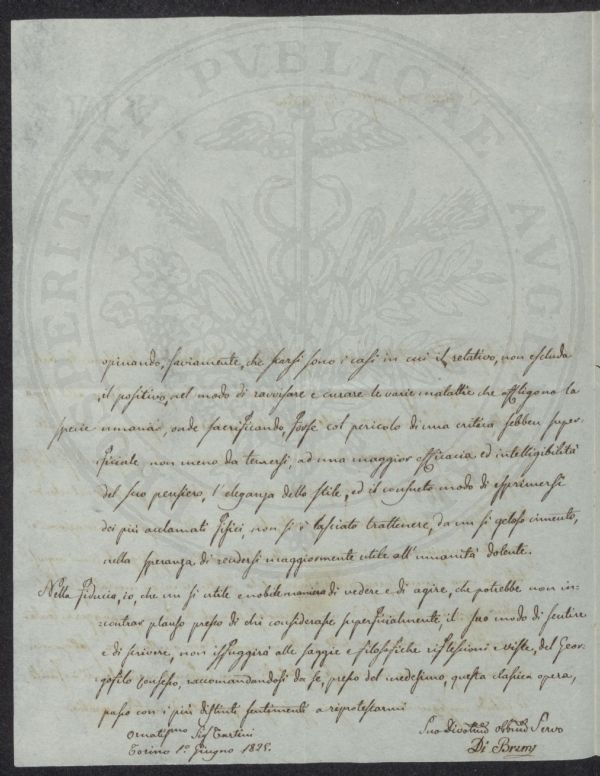 PROSPERITATI PVBLICAE AVGENDAE
opinando, saviamente, che scarsi sono i casi in cui il relativo, non escluda
il positivo, nel modo di ravvisare e curare le varie malattie che affligono la
specie umana, onde sacrificando, forse col pericolo di una critica sebben super-
ficiale non meno da temersi, ad una maggior efficacia ed intelligibilità
del suo pensiero, l'eleganza dello stile, ed il consueto modo di esprimersi
dei più acclamati fisici, non si è lasciato trattenere, da un si geloso cimento,
nella speranza di rendersi maggiormente utile all'umanità dolente.
Nella fiducia, io, che un si utile e nobile maniera di vedere e di agire, che potrebbe non in-
contrar plauso presso di chi considerasse superficialmente il suo modo di sentire
e di scrivere, non isfuggirà alle saggie e filosofiche riflessioni e viste, del Geor-
gofilo Consesso, raccomandandosi da se, presso del medesimo, questa classica opera,
passo con i più distinti sentimenti a riprotestarmi
Ornatissmo Sigr Tartini
Torino 1º Giugno 1825.
Suo Divotmo obbmo Servo
Di Bremy